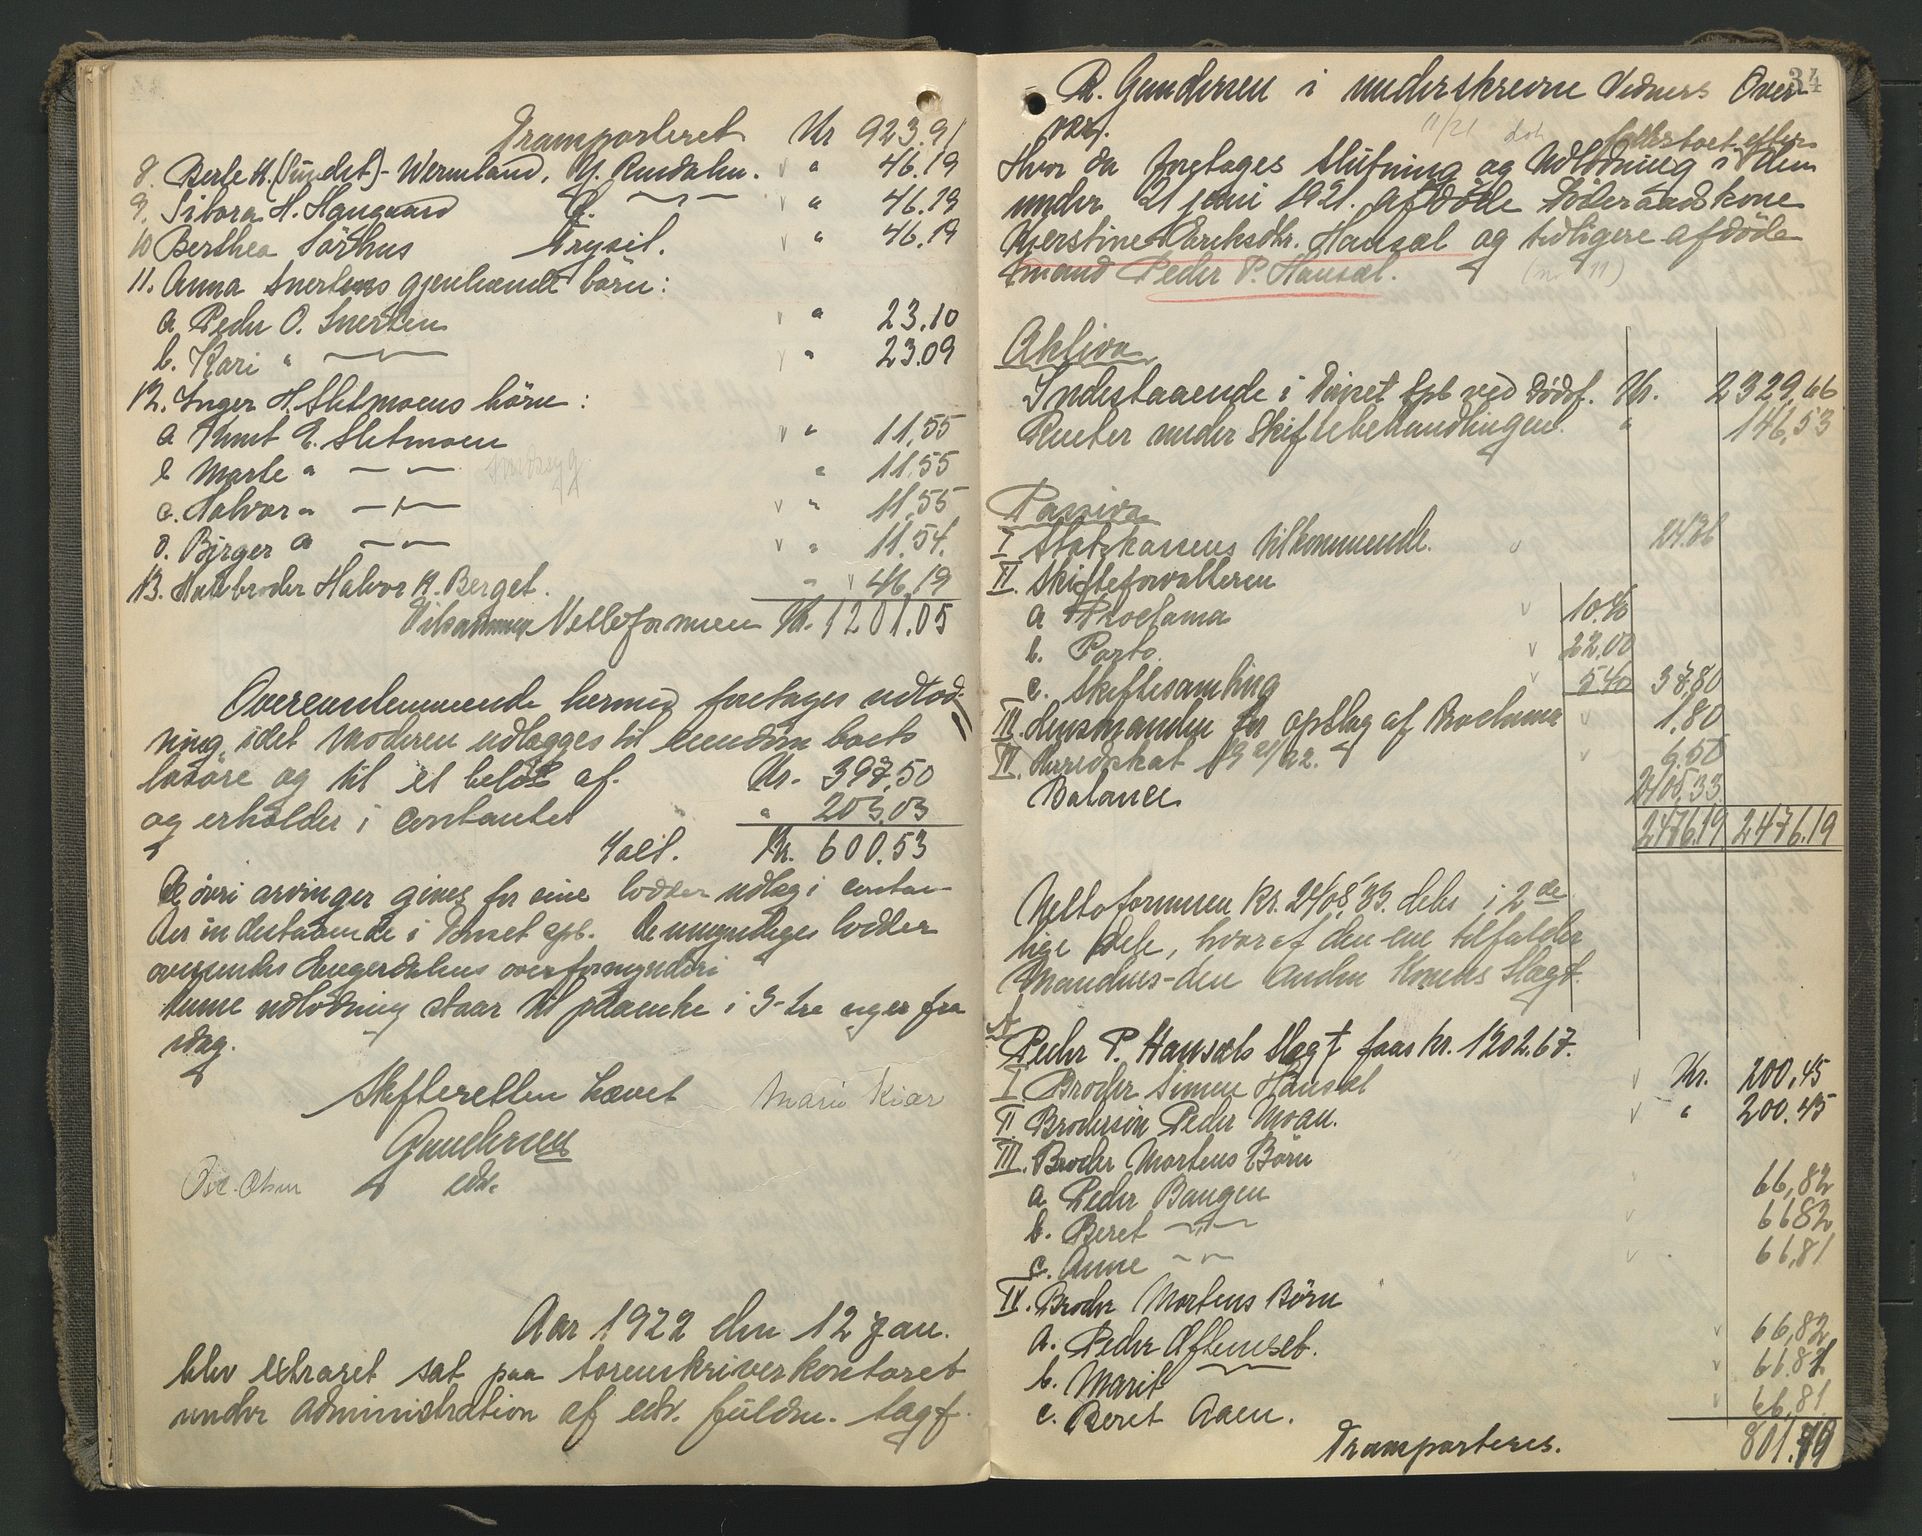 Transporteret Kr 923.91
8. Berte H. (Sundet) - Wermland, Y. Rendalen. " 46.19
9. Sibora H. Haugaard " 46.19
10 Berthea Sörhus Trysil. " 46.19
11. Anna Snertens gjenlevende börn:
a Peder O. Snerten " 23.10
b. Kari " 23.09
12. Inger H. Sletmoens börn:
a Knut E. Sletmoen " 11,55
b Marte " 11.55
c. Halvor " 11,55
d. Birger " 11.54.
13. Halvbroder Halvor H. Berget. " 46.19
Tilsammen Nettoformuen Kr. 1201.05
Overensstemmende hermed foretages udlod-
ning, idet Moderen udlægges til eiendom boets
lösöre og til et belöb af. Kr. 397,50
og erholder i contanter " 203.03
Ialt. Kr. 600.53
De övri arvinger gives for sine lodder udlæg i contan-
ter indestaaende i Tönset spb. De umyndiges lodder
oversendes Engerdalens overformynderi
Denne udlodning staar til paaanke i 3-tre uger fra
idag.
Skifteretten hævet Marie Kiær
Gundersen
edv.
Ove. Ohm
Aar 1922 den 12 jan.
blev extraret sat paa sorenskriverkontoret
under administration af edv. fuldm. sagf.
34
R. Gundersen i underskrevne Vidners Over-
vær.
Hvor da foretages Slutning og Udlodning i den
under 21 juni 1921. afdöde Föderaadskone
Kjerstine Eriksdtr. Hansæl og tidligere afdöde
mand Peder P. Hansæl. (nr 11)
Aktiva
Indestaaende i Tönset Spb ved Dödsf. Kr. 2329,66
Renter under Skiftebehandlingen. " 146,53
Passiva
I Statskassens tilkommende. 24.76
II. Skifteforvalteren
a Proclama 10.40
b. Porto. 22.00
c. Skiftesamling 5 40 37,80
III. Lensmanden for opslag af Proclama 1,80
IV. Herredskat 1921/22. 6.50
Balance 2405,33
2476.19 2476.19
Nettoformuen Kr. 2405,33. deles i 2de
lige dele, hvoraf den ene tilfalder
Mandens - den anden Konens Slægt.
A
Peder P. Hansæls Slægt faar kr. 1202.67.
I. Broder Simen Hansæl Kr. 200,45
II. Brodersön Peder Moan. " 200.45
III. Broder Mortens Börn
a Peder Bangen 66,82
b. Beret 6682
c. Anne 66,81
IV. Broder Mortens Börn
a. Peder Oftenset. 66,82
b. Marit 66.82
c. Beret Aaen. 66,81
Transporteres. 801.79